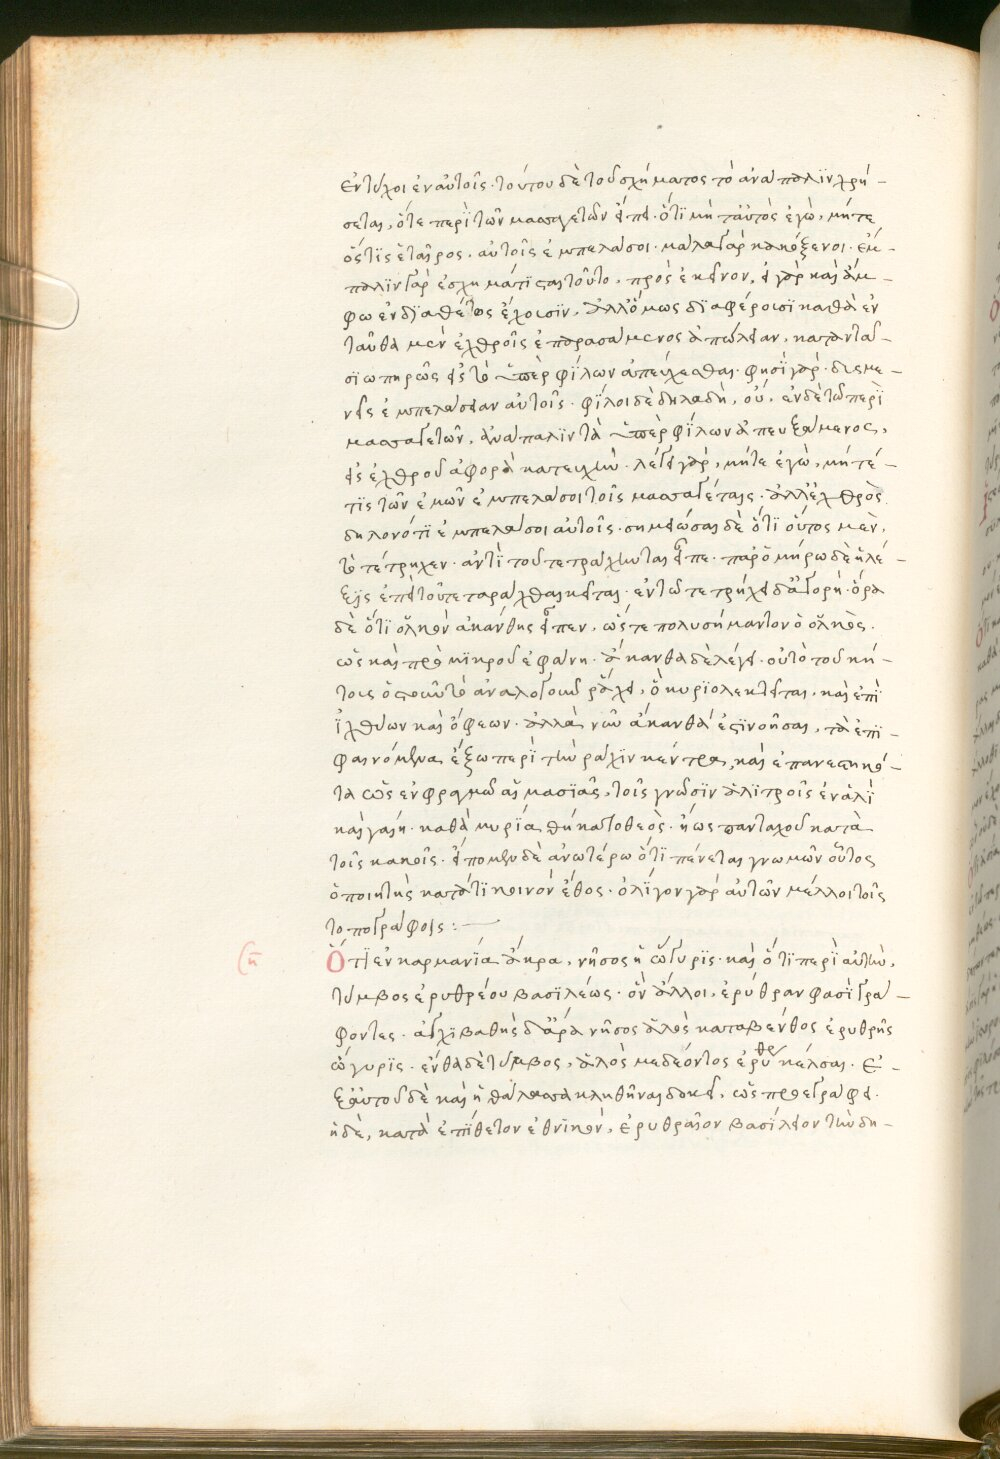 ἐντύχοι ἐν αὐτοῖς· τούτου δὲ τοῦ σχήματος τὸ ἀνάπαλϊν χρή -
σεται, ὅτε περὶ τῶν μασαγετῶν εἴπη· ὅτϊ μὴ ταὐτὸς ἐγὼ, μήτε
ὅςτϊς ἑταῖρος, αὐτοῖς ἐμπελάσοι· μάλα γὰρ κακόξενοι· ἔμ -
παλϊν γὰρ ἐσχημάτϊςαι τοῦτο, πρὸς ἐκεῖνον, εἰ γὰρ καὶ ἄμ -
φω ἐνδϊαθέτως ἔχουσϊν, ἀλλ' ὅμως δϊαφέρουσϊ καθὰ ἐν
ταῦθα μὲν ἐχθροῖς ἐπαρασάμενος ἀπώλειαν, κατανταῦ -
σϊωπηρῶς εἰς τὸ ὑπὲρ φίλων ἀπεύχεσθαι· φησὶ γάρ· δυσμε -
νεῖς ἐμπελάσειαν αὐτοῖς· φίλοι δὲ δηλαδὴ, οὔ· ἐν δὲ τῶ περὶ
μασσαγετῶν, ἀνάπαλϊν τὰ ὑπὲρ φίλων ἀπευξάμενος,
εἰς ἐχθροὺς ἀφορᾶ κατευχὴν· λέγει γὰρ, μήτε ἐγὼ, μήτέ -
τϊς τῶν ἐμῶν ἐμπελάσοι τοῖς μασσαγέταις· ἀλλ' ἐχθρὸς
δηλονότϊ ἐμπελάσοι αὐτοῖς· σημείωσαι δὲ ὅτϊ οὗτος μὲν,
τὸ τέτρηχεν· ἀντὶ τοῦ τετράχυνται εἶπε· παρ' ὁμήρω δὲ ἡ λέ -
ξις ἐπὶ τοῦ τεταράχθαι κεῖται· ἐν τῶ τετρήχει δ' ἀγορή· ὅρα
δὲ ὅτϊ ὁλκὸν ἀκάνθης εἶπεν, ὥςτε πολυσήμαντον ὁ ὁλκός·
ὡς καὶ πρὸ μϊκροῦ ἐφάνη· ἄκανθα δὲ λέγει· οὐ τὸ τοῦ κή -
τους ὀστοῦν τὸ ἀναλογοῦν ῥάχει, ὃ κυρϊολεκτεῖται, καὶ ἐπὶ
ἰχθύων καὶ ὄφεων· ἀλλὰ νῦν ἄκανθά ἐςϊ νοῆσαι, τὰ ἐπϊ -
φαινόμενα ἔξω περὶ τὴν ῥάχϊν κέντρα, καὶ ἐπανεστηκό -
τα ὡς ἐν φραγμῶ αἱμασιᾶς, τοῖς γνῶσϊν ἀλϊτροῖς ἐν ἁλὶ
καὶ γαίη· καθὰ μυρία θήκατο θεὸς· ἤως πανταχοῦ κατὰ
τοῖς κακοῖς· εἴπομεν δὲ ἀνωτέρω ὅτϊ πένεται γνωμῶν οὗτος
ὁ ποιητὴς κατά τϊ κοινὸν ἔθος· ὀλίγον γὰρ αὐτῶν μέλλοι τοῖς
τοπογράφοις : —
Ὅτϊ ἐν καρμανία ἄκρα, νῆσος ἡ ὤγυρϊς· καὶ ὅτϊ περὶ αὐτὴν,
τύμβος ἐρυθρέου βασϊλέως· ὃν ἄλλοι, ἐρύθραν φασὶ γρά -
φοντες· ἀγχϊβαθὴς δ' ἄρα νῆσος ἁλὸς κατὰ βένθος ἐρυθρῆς
ὠγυρϊς· ἔνθα δὲ τύμβος, ἁλὸς μεδέοντος ἐρυθρ κέλσαι· Ἐ -
ξ αὐτοῦ δὲ καὶ ἡ θάλασσα κληθῆναι δοκεῖ, ὡς προεγράφη·
ἡ δὲ, κατὰ ἐπίθετον ἐθνϊκὸν, ἐρυθραῖον βασίλειον τὴν δη -